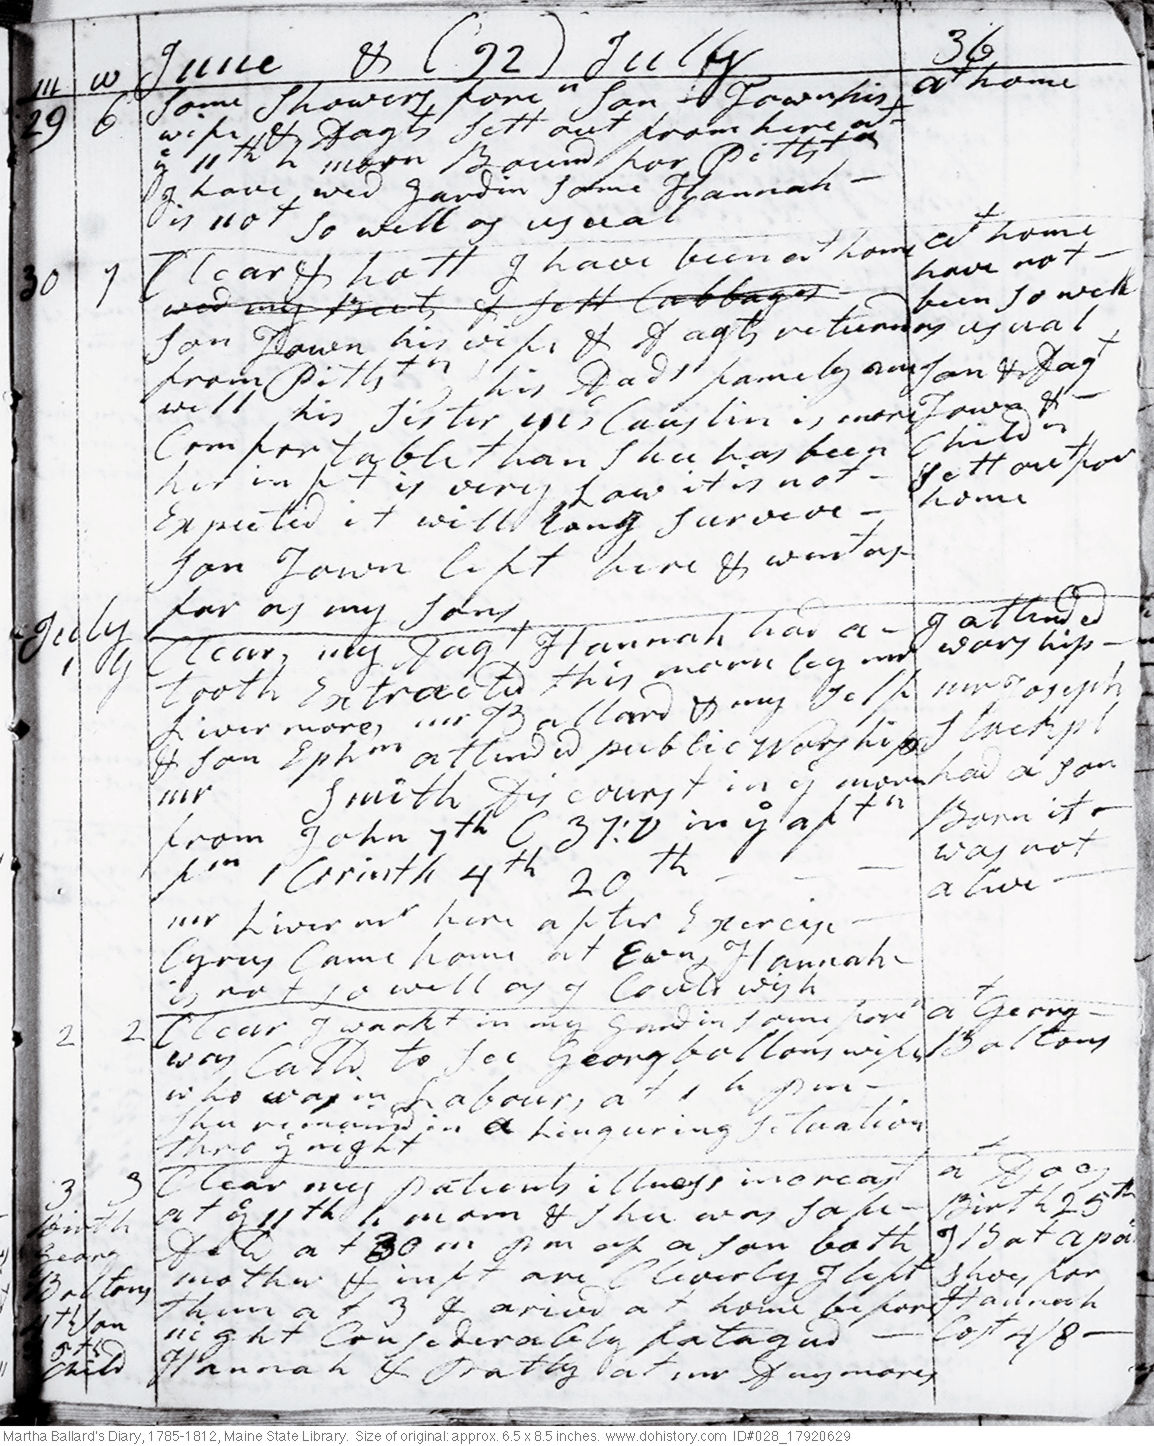 m w June & (92) July 36
29 6 Some Showers, foren Son Town his at home
wife & Dagts sett out from here at
ÿ 11th h morn Bound for Pittstn
I have wed gardin some Hannah –
is not so well as usual
30 7 Clear & hott I have been at home at home
wed my Beets & sett Cabbages have not –
Son Town his wife & Dagts returnd been so well
from Pittstn, his Dads family are as usual
well his sister Caustin is more Son & Dagt
Comfortable than Shee has been Town & –
her inft is very Low it is not – Childn
Expected it will Long Survive – sett out for
Son Town left here & went as home
far as my sons,
July
1 G Clear, my Dagt Hannah had a – I attended
tooth Extracted this morn by mr worship –
Livermore, mr Ballard & my Self mr Joseph
& son Ephm attended public Worship Stackpl
mr Smith Discourst in ÿ morn had a son
from John 7th C 37:V in ÿ aftn Born it –
fm 1 Corinth 4th 20th – – – was not
mr Livermr here after Exercise – alive –
Cyrus Came home at Evn, Hannah –
is not so well as I Could wish
2 2 Clear I workt in my gardin some foren at Georg –
was Calld to see Georg boltons wife Boltons
who was in Labour, at 1 h pm –
Shee remaind in a Linguring situation
thro ÿ night
3 3 Clear my patients illness increast at Dogs
Birth at ÿ 11th h morn & shee was safe – Birth 25th
Georg Deld at 30 m pm of a son both I Bot a pair
Boltons mother & inft are Cleverly I left shoes for
4th son them at 3 & arivd at home before Hannah
5th night Considerably fatagud – Cost 4/8 –
Child Hannah & Dratly at mr Densmores,
Martha Ballard's Diary, 1785-1812, Maine State Library. Size of original: approx. 6.5 x 8.5 inches. www.dohistory.com ID#028_17920629